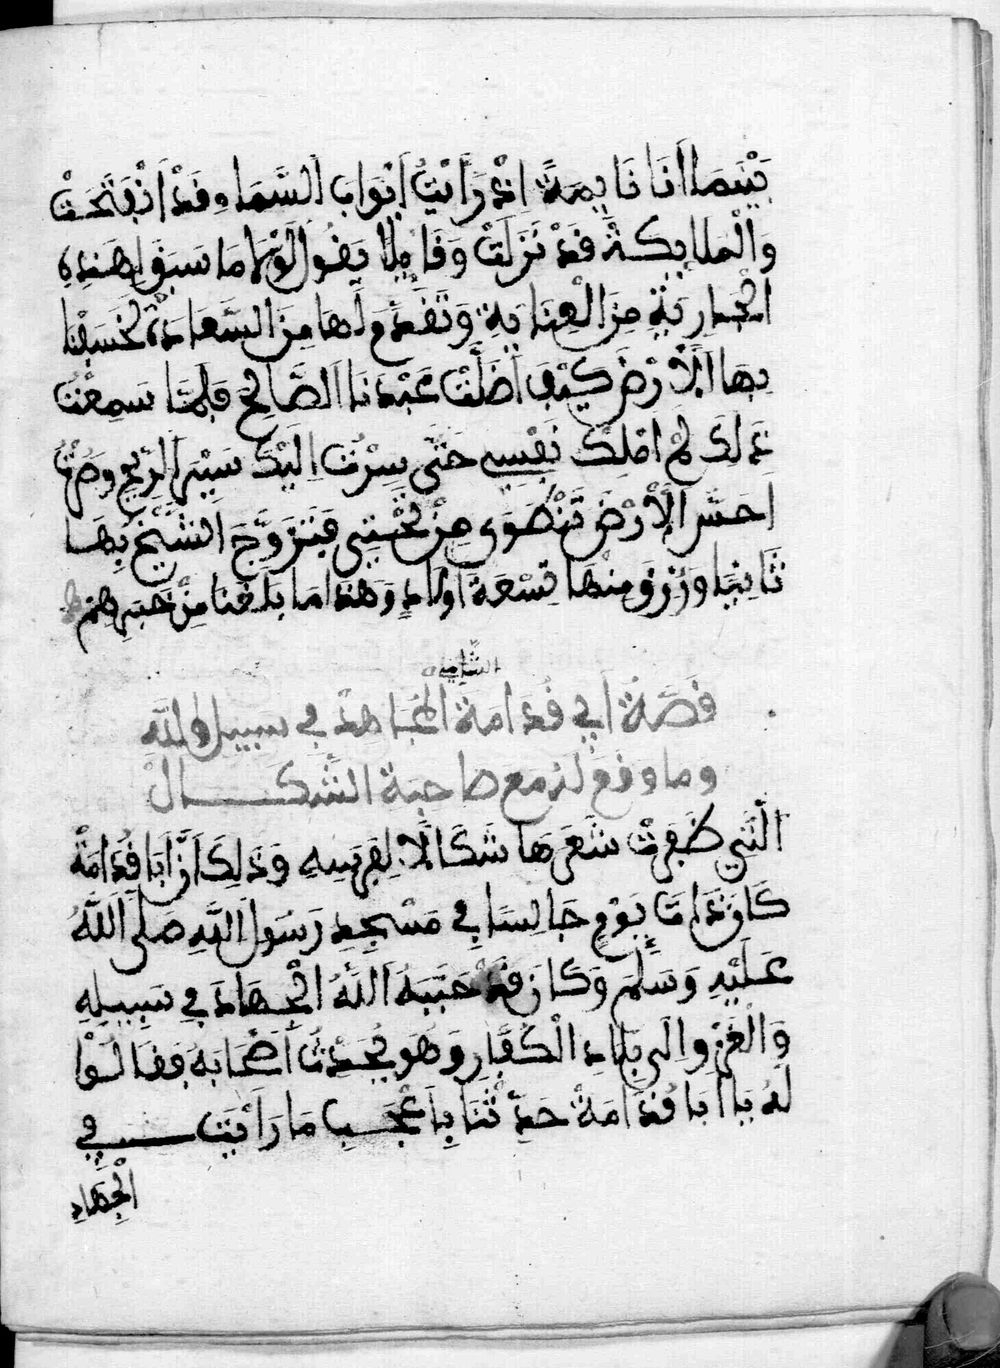 بَيْنَمَا أَنَا نَايِمَةً إِذْ رَأَيْتُ أَبْوَابَ السَّمَاءِ فَدْ انْفَتَحَتْ
وَالْمَلَايِكَةُ فَدْ نَزَلَتْ وَقَايِلًا يَقُولُ لَوْلَا مَا سَبَقَ لِهَذِهِ
الْجَارِيَةِ مِنَ الْعِنَايَةِ وَتَقَدَّمَ لَهَا مِنَ السَّعَادَةِ لَخَسَفْنَا
بِهَا الْأَرْضَ كَيْفَ أَضَلَّتْ عَبْدَنَا الصَّالِحَ فَلَمَّا سَمِعْتُ
ذَلِكَ لَمْ امْلِكْ نَفْسِي حَتَّى سِرْتُ الَيْكَ سَيْرَ الرِّيحِ وَصِرْتُ
احَسُّ الْأَرْضَ تَنْطَوِى مِنْ تَحْتِي فَتَزَوَّجَ الشَّيْخُ بِهَا
ثَانِيًا وَرُزِقَ مِنْهَا تِسْعَةَ اولَادٍ وَهَذَا مَا بَلَغَنَا مِنْ خَبَرِهِمْ
الشَّامِي
قِصَّةُ أَبِي قُدَامَةَ الْمُجَاهِدْ فِي سَبِيلِ اللَّهِ
وما وقع له مع صاحبة الشَّكَال
الَّتِي ظَفَرَتْ شَعَرَهَا شَكَالًا لِفَرَسِهِ وَذَلِكَ أَنَّ أَبَا قُدَامَةْ
كَانَ ذَاتَ يَوْمٍ جَالِسًا فِي مَسْجِدِ رَسُولِ اللَّهِ صَلَّى اللَّهُ
عَلَيْهِ وَسَلَّمَ وَكَانَ قَدْ حَبَّبَهُ اللَّهُ الْجِهَادَ فِي سَبِيلِهِ
وَالْغَزْوِ الَى بِلَادِ الْكُفَّارِ وَهُوَ يُحَدِّثُ أَصْحَابَهُ فَقَالُوْا
لَهُ يَا أَبَا قُدَامَةْ حَدِّثْنَا بِأَعْجَبِ مَا رَأَيْتَ فِي
الْجِهَادِ